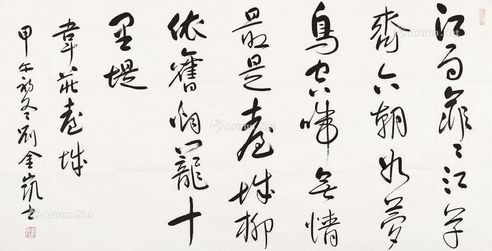 江雨霏々江草
齊六朝如夢
鳥空啼無情
最是臺城柳
依舊烟籠十
里堤
韋莊臺城
甲午初冬劉金凱書